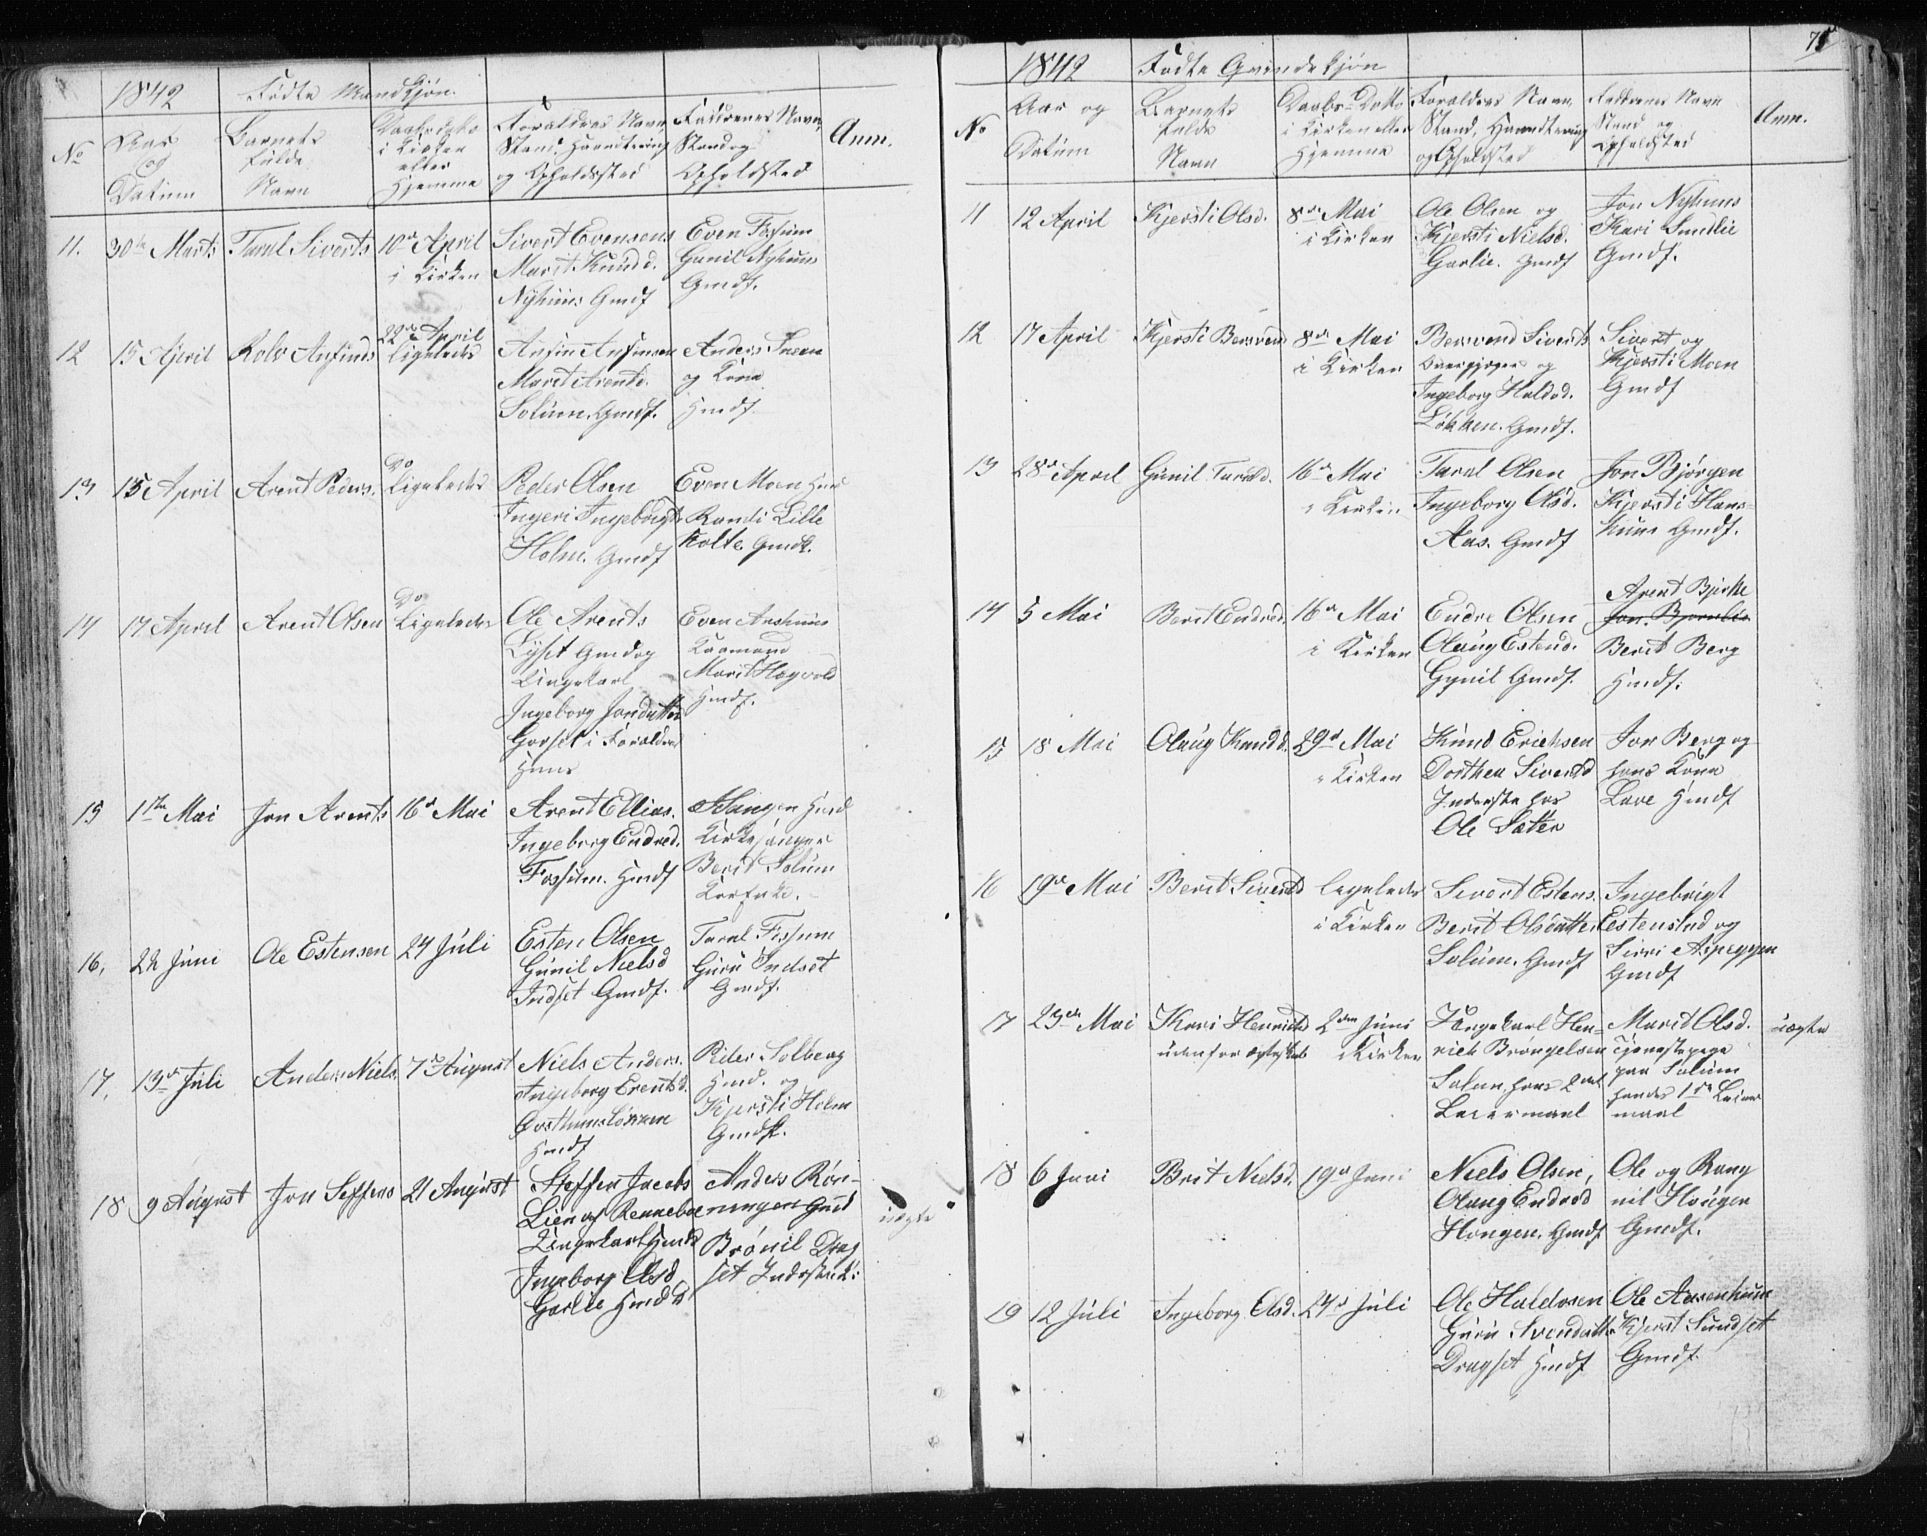 1842 Födte Mandkjön.
No
Aar og Datum
Barnets fulde Navn
Daabsdatto i Kirken eller Hjemme
Forældres Navn, Stand, Haandtering og Opholdssted
Faddrenes Navn, Stand og Opholdsted
Anm.
11. 30te Marts Taral Siverts 10de April i Kirken
Sivert Evensens
Marit Knudsd.
Nyhuus Gmdf
Even Fossum
Gunil Nyhuus
Gmdf.
12 15 April Rolv Anfinds 22de April Ligeledes
Anfin Anfinsen
Marit Arentsd.
Solum. Gmdf.
Anders Sneen
og Kone
Hmdf.
13 15 April Arent Peders. Do Ligeledes
Peder Olsen
Ingeri Ingebrigts
Holm. Gmdf
Even Moen
Randi Lille
Kolte. Gmdk.
14 17 April Arent Olsen Do Ligeledes
Ole Arents
Lyset Gmd og
Ungekarl
Ingeborg Jondatter
Gorset i Forældres
Huus
Even Aashuus
Marit Hagvold
Hmdf.
15 1ste Mai Jon Arents 16d Mai
Arent Ellias.
Ingeborg Endred.
Fossum. Hmdf
Haugen Hmd
Kirkesanger
Berit Solum
16. 24 Juni Ole Estensen 24 Juli
Esten Olsen
Gunil Nielsd
Indset Gmdf.
Taral Fossum
Guru Indset
Gmdf.
17. 13d Juli Anders Niels. 7d August
Niels Anders.
Ingeborg Erentsd.
Hmdf
Peder Solberg
Hmd. og
Kjersti Holm
Gmdsk.
18 9 August Jon Seffens 21 August
Steffen Jacobs
Lien af Rennebo
Ungekarl Hmds
Ingeborg Olsd
Garlie Hmds
Anders Rön-
ningen Gmd
Brönil Drag
set Inderstik.
uægte
75
1842 Födte Qvindekjön
No
Aar og Datum
Barnets fulde Navn
Daabs-Datto i Kirken eller Hjemme
Forældres Navn, Stand, Haandtering og Opholdsted
Faddrenes Navn Stand og Opholdsted
Anm.
11 12 April Kjersti Olsd. 8de Mai i Kirken
Ole Olsen og
Kjersti Nielsd.
Garlie. Gmdf
Jon Nyhuus
Kari Smedlie
Gmdf.
12 17 April Kjersti Bersvend 8de Mai i Kirken
Bersvend Siverts
og
Ingeborg Haldosd.
Lökken. Gmdf.
Sivert og
Kjersti Moen
Gmdf
13 28d April Gunil Tarald. 16d Mai i Kirken
Taral Olsen
Ingeborg Olsd.
Aas. Gmdf
Jon Bjørgen
Kjersti Hans-
huus Gmdf.
14 5 Mai Berit Endred. 16d Mai i Kirken
Endre Olsen
Olaug Estensd.
Gynil Gmdf.
Arent Bjerke
Jon Bjørnlie
Berit Berg
Hmdf.
15 18 Mai Olaug Knudsd. 29d Mai i Kirken
Knud Erichsen
Dorthea Sivertsd
Inderste hos
Ole Sæter
Jon Berg og
hans Kone
Lave Hmdf
16 19d Mai Berit Sivertsd ligeledes i Kirken
Sivert Estens.
Berit Olsdatter
Solum. Gmdf
Ingebrigt
Estenstad og
Siri Aspeggen
Gmdf
17 23de Mai Kari Henrichsd udenfor Ægteskab 2den Juni i Kirken
Ungekarl Hen-
rich Bröngelsen
Solum hans 2det
Leiermaal
Marit Olsd.
Tjenestepige
paa Solum
hendes 1ste Leier
maal
uægte
18 6 Juni Brit Nielsd. 19d Juni
Niels Olsen,
Olaug Endresd
Hougen. Gmdf
Ole og Rang
nil Hougen
Gmdf.
19 12 Juli Ingeborg Olsd. 24d Juli
Ole Haldosen
Guru Svendatter
Dragset Hmdf
Ole Aasenhuus
Kjerst Sundset
Gmdf.